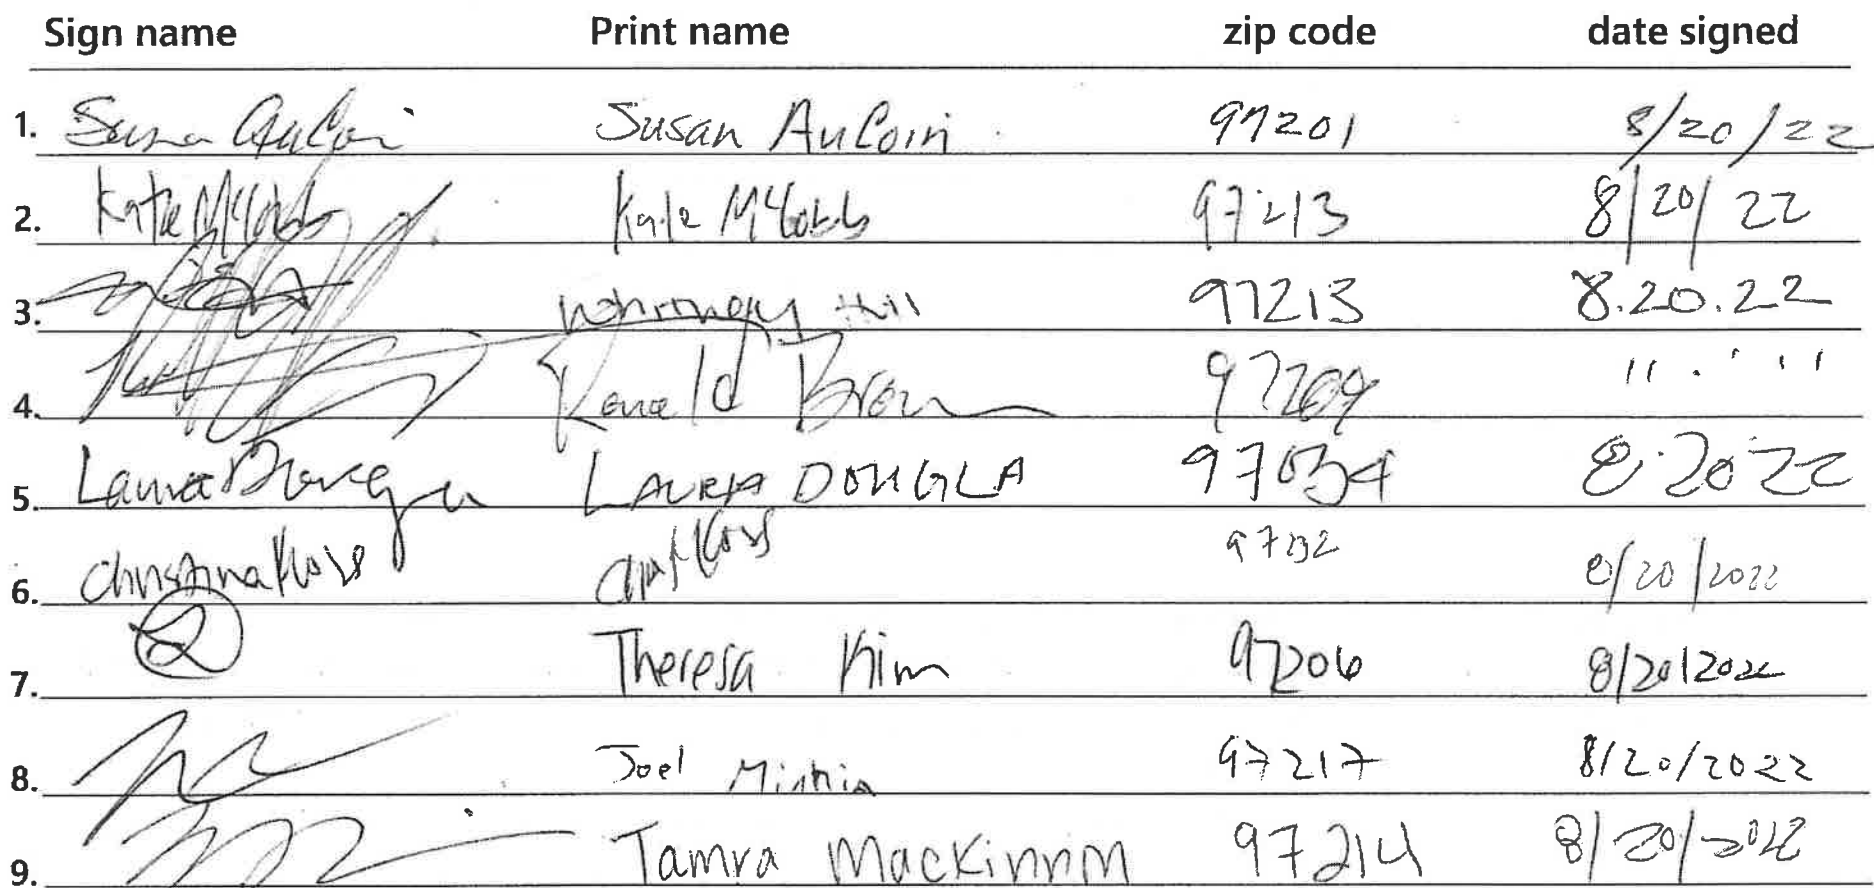 Sign name Print name zip code date signed
1. Susan AuCoin Susan AuCoin 97201 8/20/22
2. Kate McCobb Kate McCobb 97213 8/20/22
3. Hill 97213 8.20.22
4. Ronald Brown 97209 " . ' "
5. Laura LAURA DOUGLA 97034 8.20 22
6. Christina 97232 8/20/2022
7. 2 Theresa Kim 97206 8/20/2022
8. Joel 97217 8/20/2022
9. Tamra Mackinnon 97214 8/20/2022